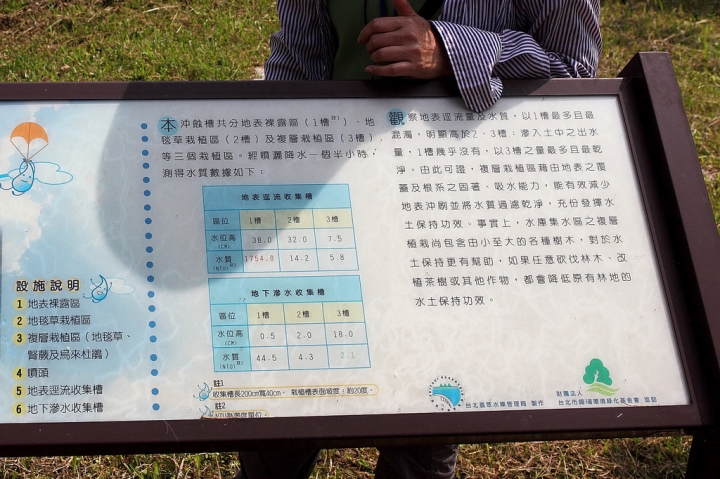 設施說明
1 地表裸露區
2 地毯草栽植區
3 複層栽植區（地毯草、
腎蕨及烏來杜鵑）
4 噴頭
5 地表逕流收集槽
6 地下滲水收集槽
本沖蝕槽共分地表裸露區（1槽註1）、地
毯草栽植區（2槽）及複層栽植區（3槽），
等三個栽植區。經噴灑降水一個半小時，
測得水質數據如下：
地表逕流收集槽
區位 1槽 2槽 3槽
水位高(CM) 38.0 32.0 7.5
水質(NTU)註2 1754.0 14.2 5.8
地下滲水收集槽
區位 1槽 2槽 3槽
水位高(CM) 0.5 2.0 18.0
水質(NTU)註2 44.5 4.3 2.1
註1
收集槽長200cm寬40cm。 栽植槽表面坡度：約20度。
註2
NTU為濁度單位。
觀察地表逕流量及水質，以1槽最多且最
混濁，明顯高於2、3槽；滲入土中之出水
量，1槽幾乎沒有，以3槽之量最多且最乾
淨。由此可證，複層栽植區藉由地表之覆
蓋及根系之固著、吸水能力，能有效減少
地表沖刷並將水質過濾乾淨，充份發揮水
土保持功效。事實上，水庫集水區之複層
植栽尚包含由小至大的各種樹木，對於水
土保持更有幫助，如果任意砍伐林木、改
植茶樹或其他作物，都會降低原有林地的
水土保持功效。
台北翡翠水庫管理局 製作
財團法人
台北市錫瑠環境綠化基金會 協助